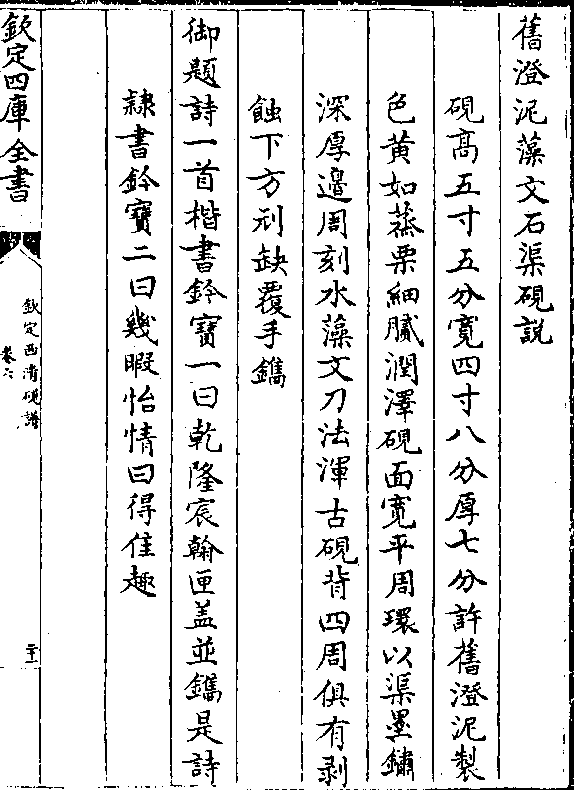 舊澄泥藻文石渠硯説
硯髙五寸五分寛四寸八分厚七分許舊澄泥製
色黄如蒸栗細膩潤澤硯面寛平周環以渠墨鏽
深厚邉周刻水藻文刀法渾古硯背四周俱有剥
蝕下方刓缺覆手鐫
御題詩一首楷書鈐寳一曰乾隆宸翰匣盖並鐫是詩
隷書鈐寳二曰幾暇怡情曰得佳趣
欽定四庫全書
欽定西清硯譜
卷六
二十二